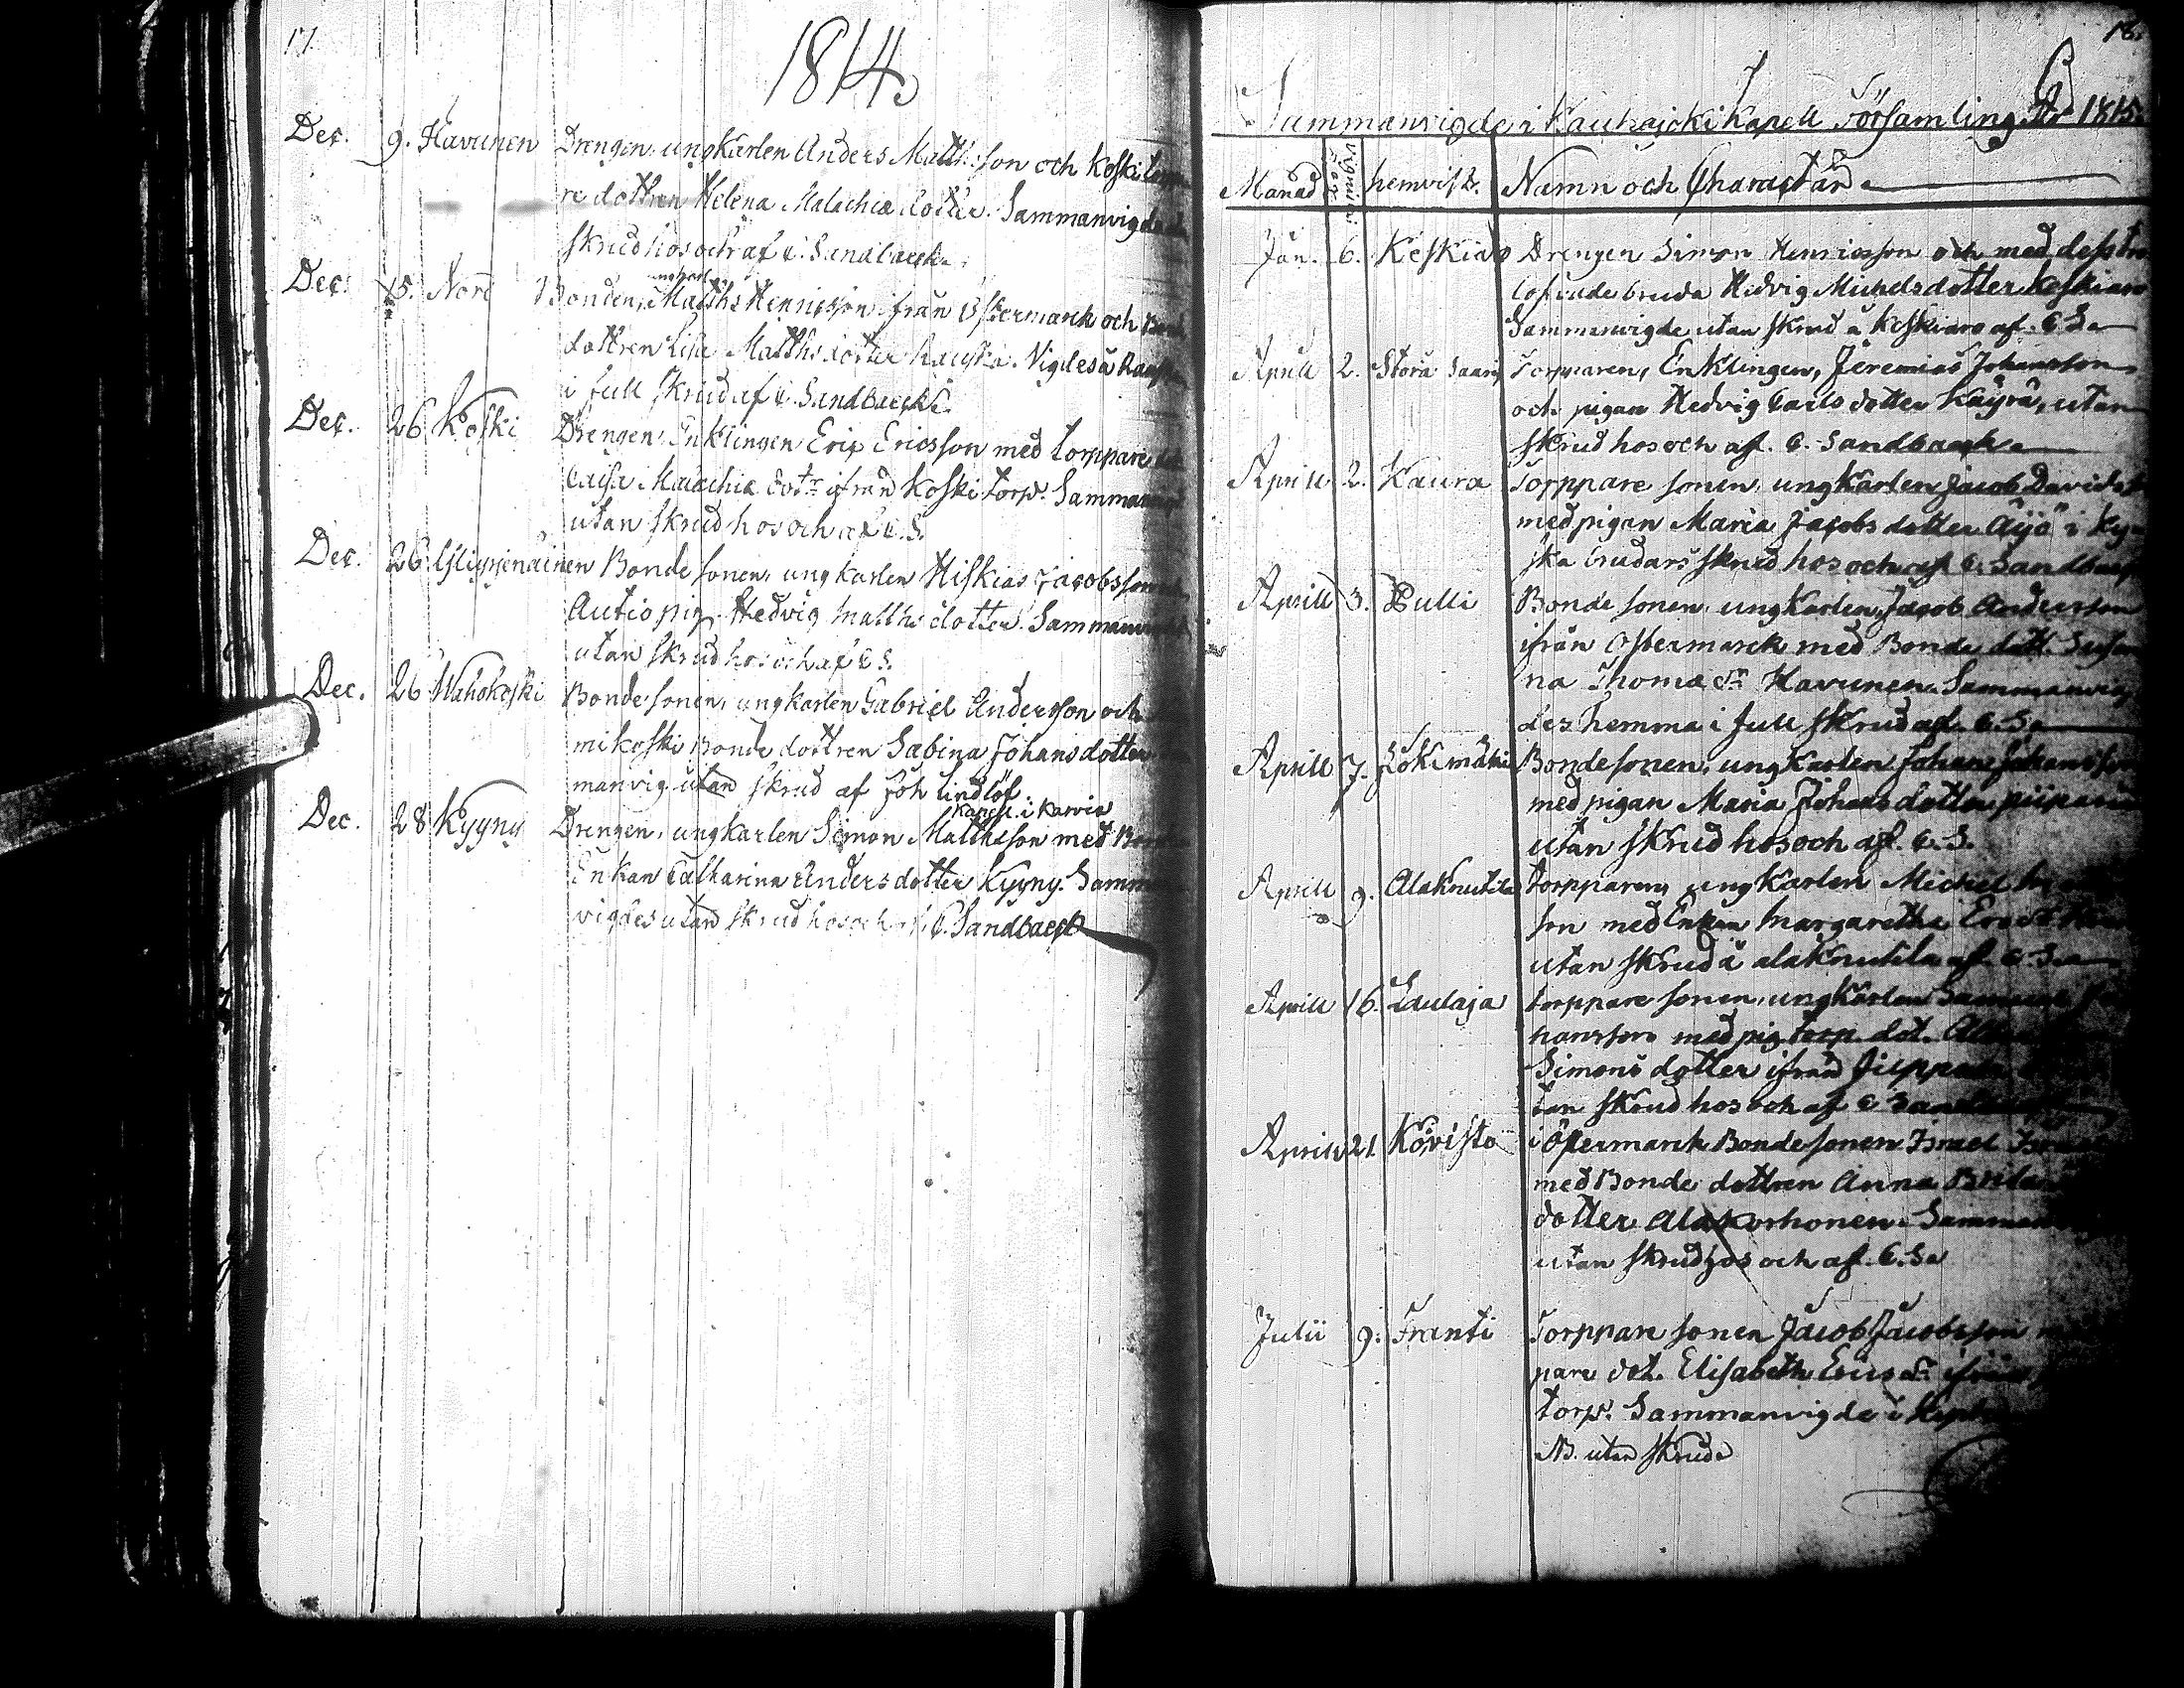 17.
1814.
Dec. 9. Havunen Drengen, ungkarlen Anders Matthsson och Koski torppa
re dottren Helena Malachiæ dotter. Sammanvigde
skrud hos och af C. Sandbaeck.
Dec. 15. Norr Bonden, ungkarl Matths Henricsson ifrån Östermarck och Bond
dottren Lisa Matths dotter Rauska. Vigdes å
i full skrud af C. Sandbaeck.
Dec. 26 Koski Drengen, Enklingen Eric Ericsson med torppare
Caisa Malachiæ dotr ifrån Koski torp. Samman
utan skrud hos och af C. S.
Dec. 26 Bonde sonen, ungkarlen Hiskias Jacobsson
Autio pig. Hedvig Matths dotter. Sammanvigd
utan skrud hos och af C S.
Dec. 26 Wahokoski Bonde sonen, ungkarlen Gabriel Andersson och
mikoski Bonde dottren Sabina Johans dotter
manvig utan skrud af Joh Lindlöf.
Kapell. i Karvia
Dec. 28 Kyyny Drengen, ungkarlen Simon Matthsson med Bonde
Enkan Catharina Anders dotter Kyyny. Samm
vigdes utan skrud hos och af C. Sandbaeck
18.
Sammanvigde i Kauhajoki Kapell Församling År 1815.
Månad Vignins dag hemvist. Namn och Character
Jan. 6. Keskiaro Drengen Simon Henricsson och med dess tro
lofvade bruda Hedvig Michels dotter Keskiaro
Sammanvigde utan skrud å Keskiaro af C. S.
Aprill 2. Stora Saari Torpparen, Enklingen, Jeremias Johansson
och pigan Hedvig Carls dotter Käyrä, utan
skrud hos och af. C. Sandbaeck.
Aprill 2. Kaura Torppare sonen, ungkarlen Jacob Davids
med pigan Maria Jacobs dotter Äijö i Ky
ska brudars skrud hos och af C. Sandbaeck
Aprill 3. Pulli Bonde sonen, ungkarlen, Jacob Andersson
ifrån Östermarck med Bonde dott. Susan
na Thomæ dr Havunen. Sammanvig
des hemma i full skrud af. C. S.
Aprill 7. Jokimäki Bonde sonen, ungkarlen Johan Johansson
med pigan Maria Johans dotter piipari
utan skrud hos och af. C. S.
Aprill 9. Alaknutila torpparen, ungkarlen Michel
son med Enkan Margaretha Erics dr
utan skrud å alaknutila af. C. S.
Aprill 16. Laulaja torppare sonen, ungkarlen
hansson med pig. torp. dot.
Simons dotter ifrån
tan skrud hos och af C
Aprill 21 Koivisto i Östermarck Bonde sonen Israel
med Bonde dottren Anna Brita
dotter Alakorhonen. Samman
utan skrud hos och af. C. S.
Julii 9. Franti Torppare sonen Jacob Jacobsson
pare dot. Elisabeth Erics dr ifrån
torp. Sammanvigde i
NB. utan skrud.